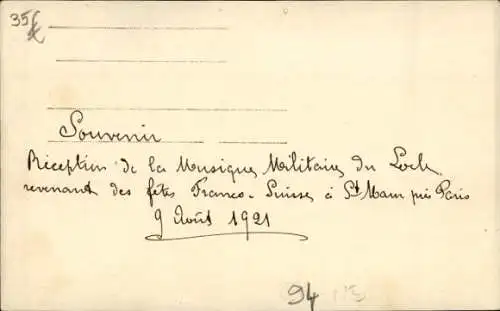 35€
Souvenir
Réception de la Musique Militaire du Locle
revenant des fêtes Franco-Suisses à St Maur près Paris
9 Août 1921
94